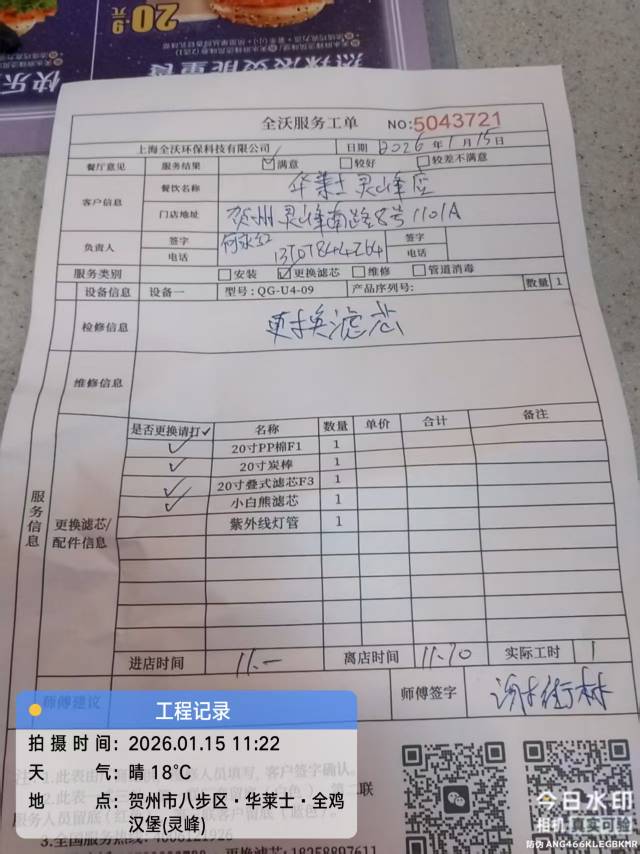 20.9元
全沃服务工单 NO:5043721
上海全沃环保科技有限公司 日期 2026 年 1 月 15 日
餐厅意见 服务结果 ☑满意 □较好 □较差不满意
客户信息 餐饮名称 华莱士灵峰店
门店地址 贺州灵峰南路8号1101A
负责人 签字 签字
电话 电话
服务类别 □安装 ☑更换滤芯 □维修 □管道消毒
设备信息 设备一 型号:QG-U4-09 产品序列号: 数量 1
检修信息 更换滤芯
维修信息
服务信息
更换滤芯/配件信息
是否更换请打✓ 名称 数量 单价 合计 备注
✓ 20寸PP棉F1 1
✓ 20寸炭棒 1
✓ 20寸叠式滤芯F3 1
✓ 小白熊滤芯 1
紫外线灯管 1
进店时间 11.一 离店时间 实际工时 1
师傅建议 师傅签字
工程记录
拍摄时间:2026.01.15 11:22
天 气:晴 18℃
地 点:贺州市八步区·华莱士·全鸡
汉堡(灵峰)
今日水印
相机 真实可验
防伪 ANG466KLEGBKMR